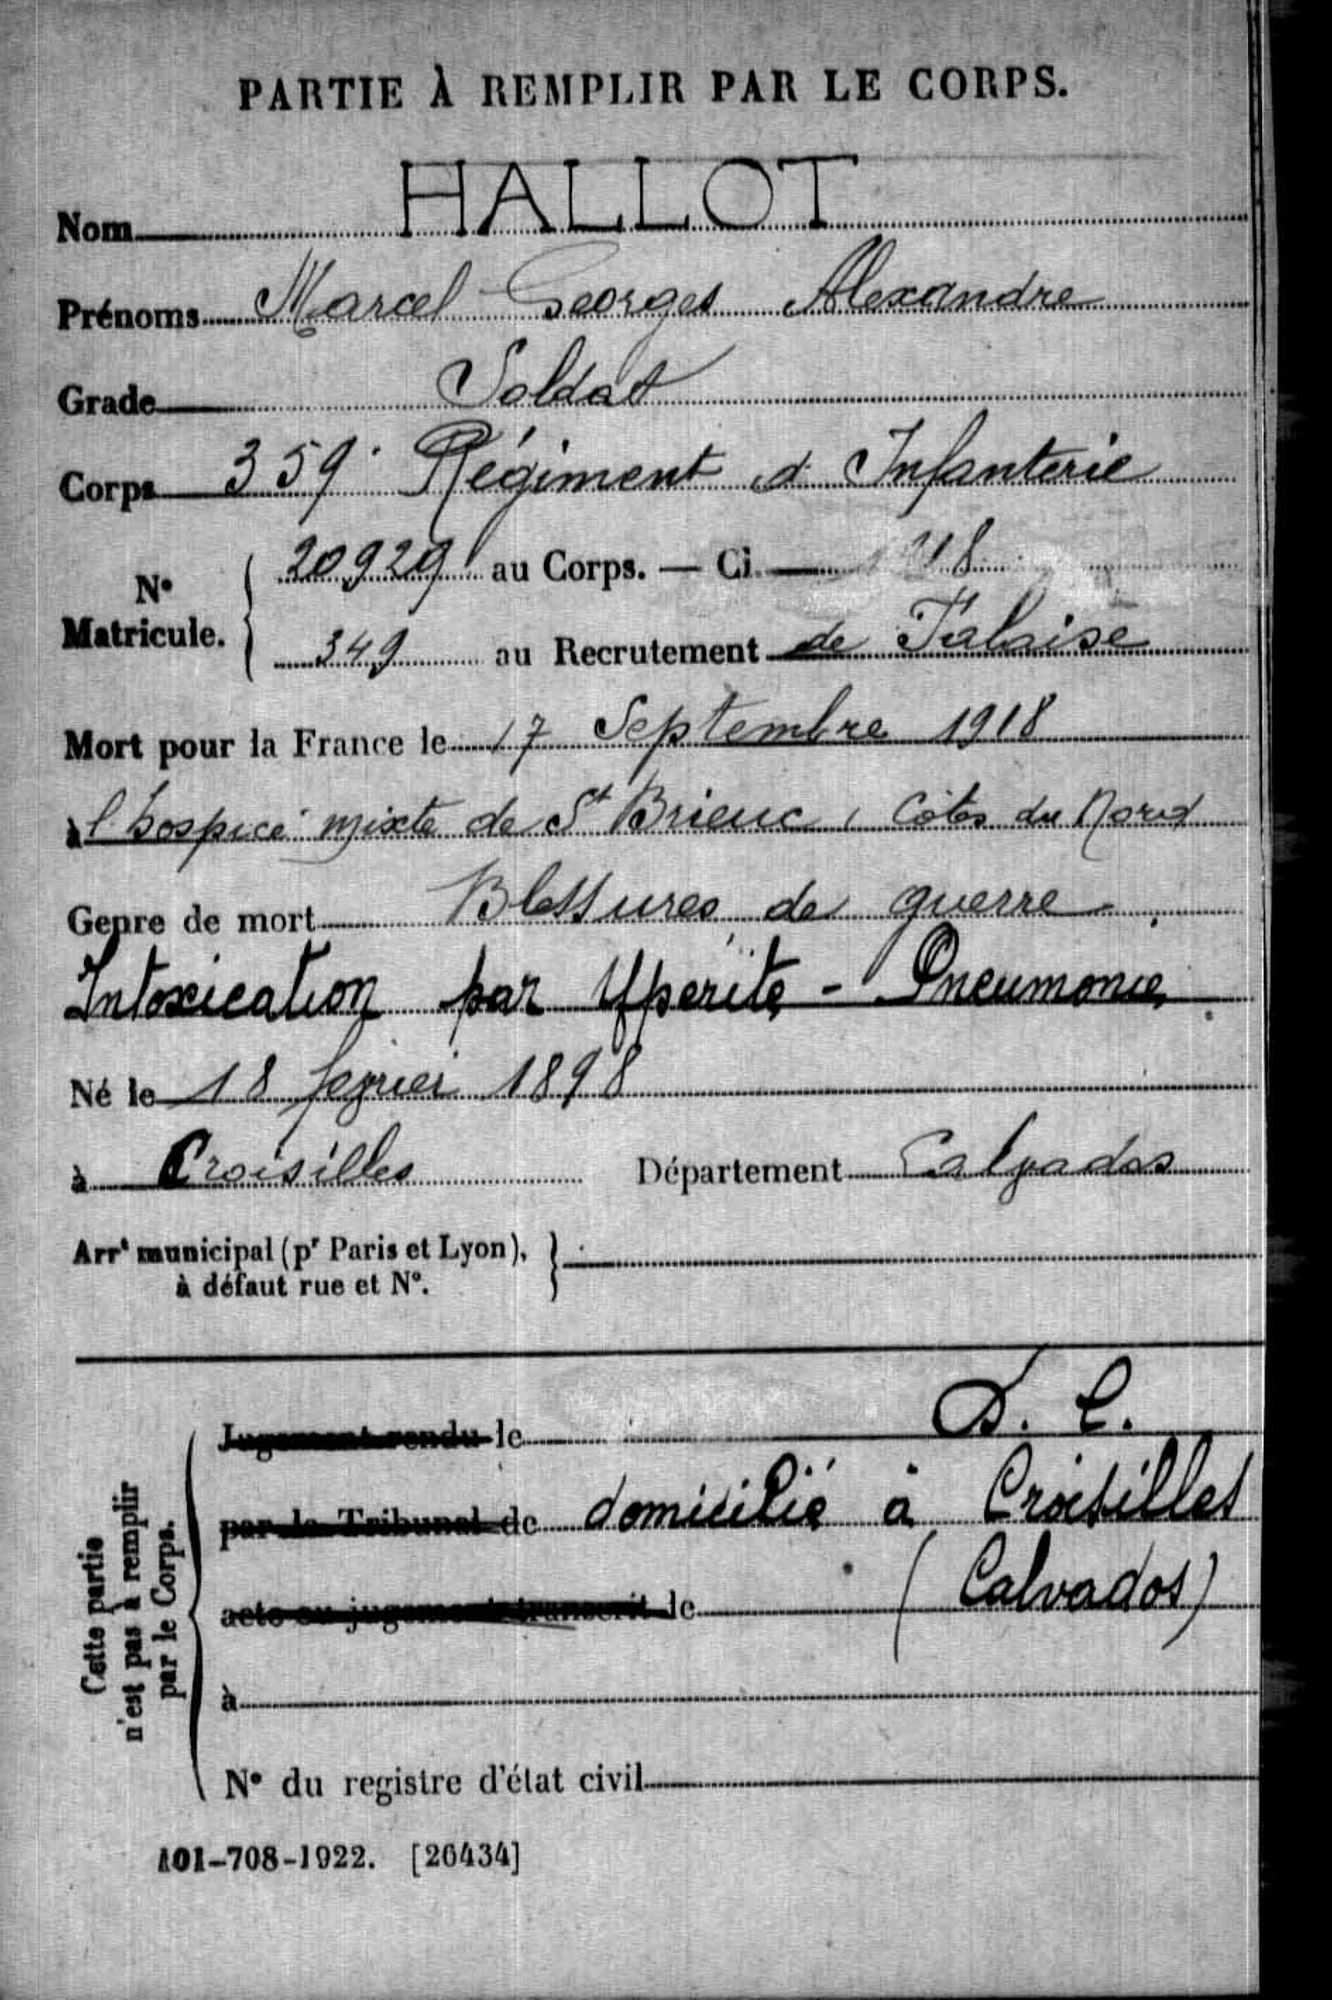 PARTIE À REMPLIR PAR LE CORPS.
Nom HALLOT
Prénoms Marcel Georges Alexandre
Grade Soldat
Corps 359e Régiment d' Infanterie
N° Matricule. 20929 au Corps. — Cl. 1918
349 au Recrutement de Falaise
Mort pour la France le 17 Septembre 1918
à l'hospice mixte de St Brieuc, Côtes du Nord
Genre de mort Blessures de guerre
Intoxication par Ypérite - Pneumonie
Né le 18 février 1898
à Croisilles Département Calvados
Arrt municipal (pr Paris et Lyon),
à défaut rue et N°.
Cette partie
n'est pas à remplir
par le Corps.
Jugement rendu le D. C.
par le Tribunal de domicilié à Croisilles
acte ou jugement transcrit le (Calvados)
à
N° du registre d'état civil
101-708-1922. [26434]